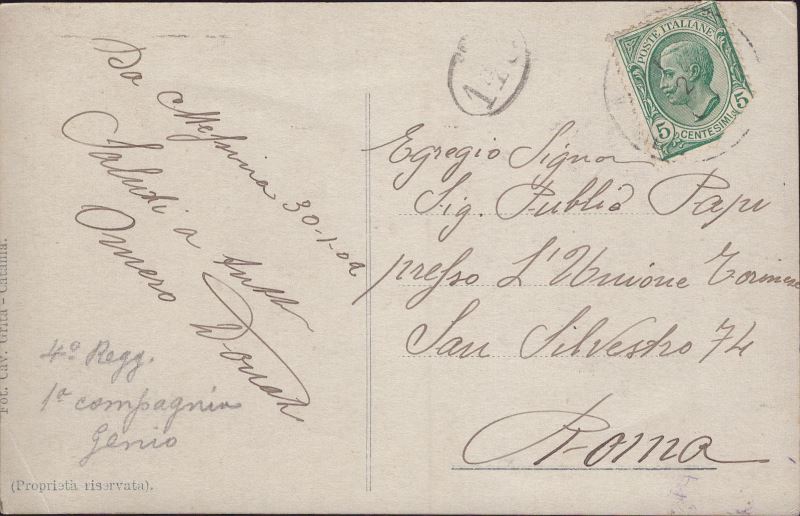 Da Messina 30-1-09
Saluti a tutti
Omero Donati
4º Regg.
1ª compagnia
genio
(Proprietà riservata).
Fot. Cav. Grita - Catania.
POSTE ITALIANE
5 CENTESIMI 5
Egregio Signor
Sig. Publio Papi
presso L'Unione Torinese
San Silvestro 74
Roma